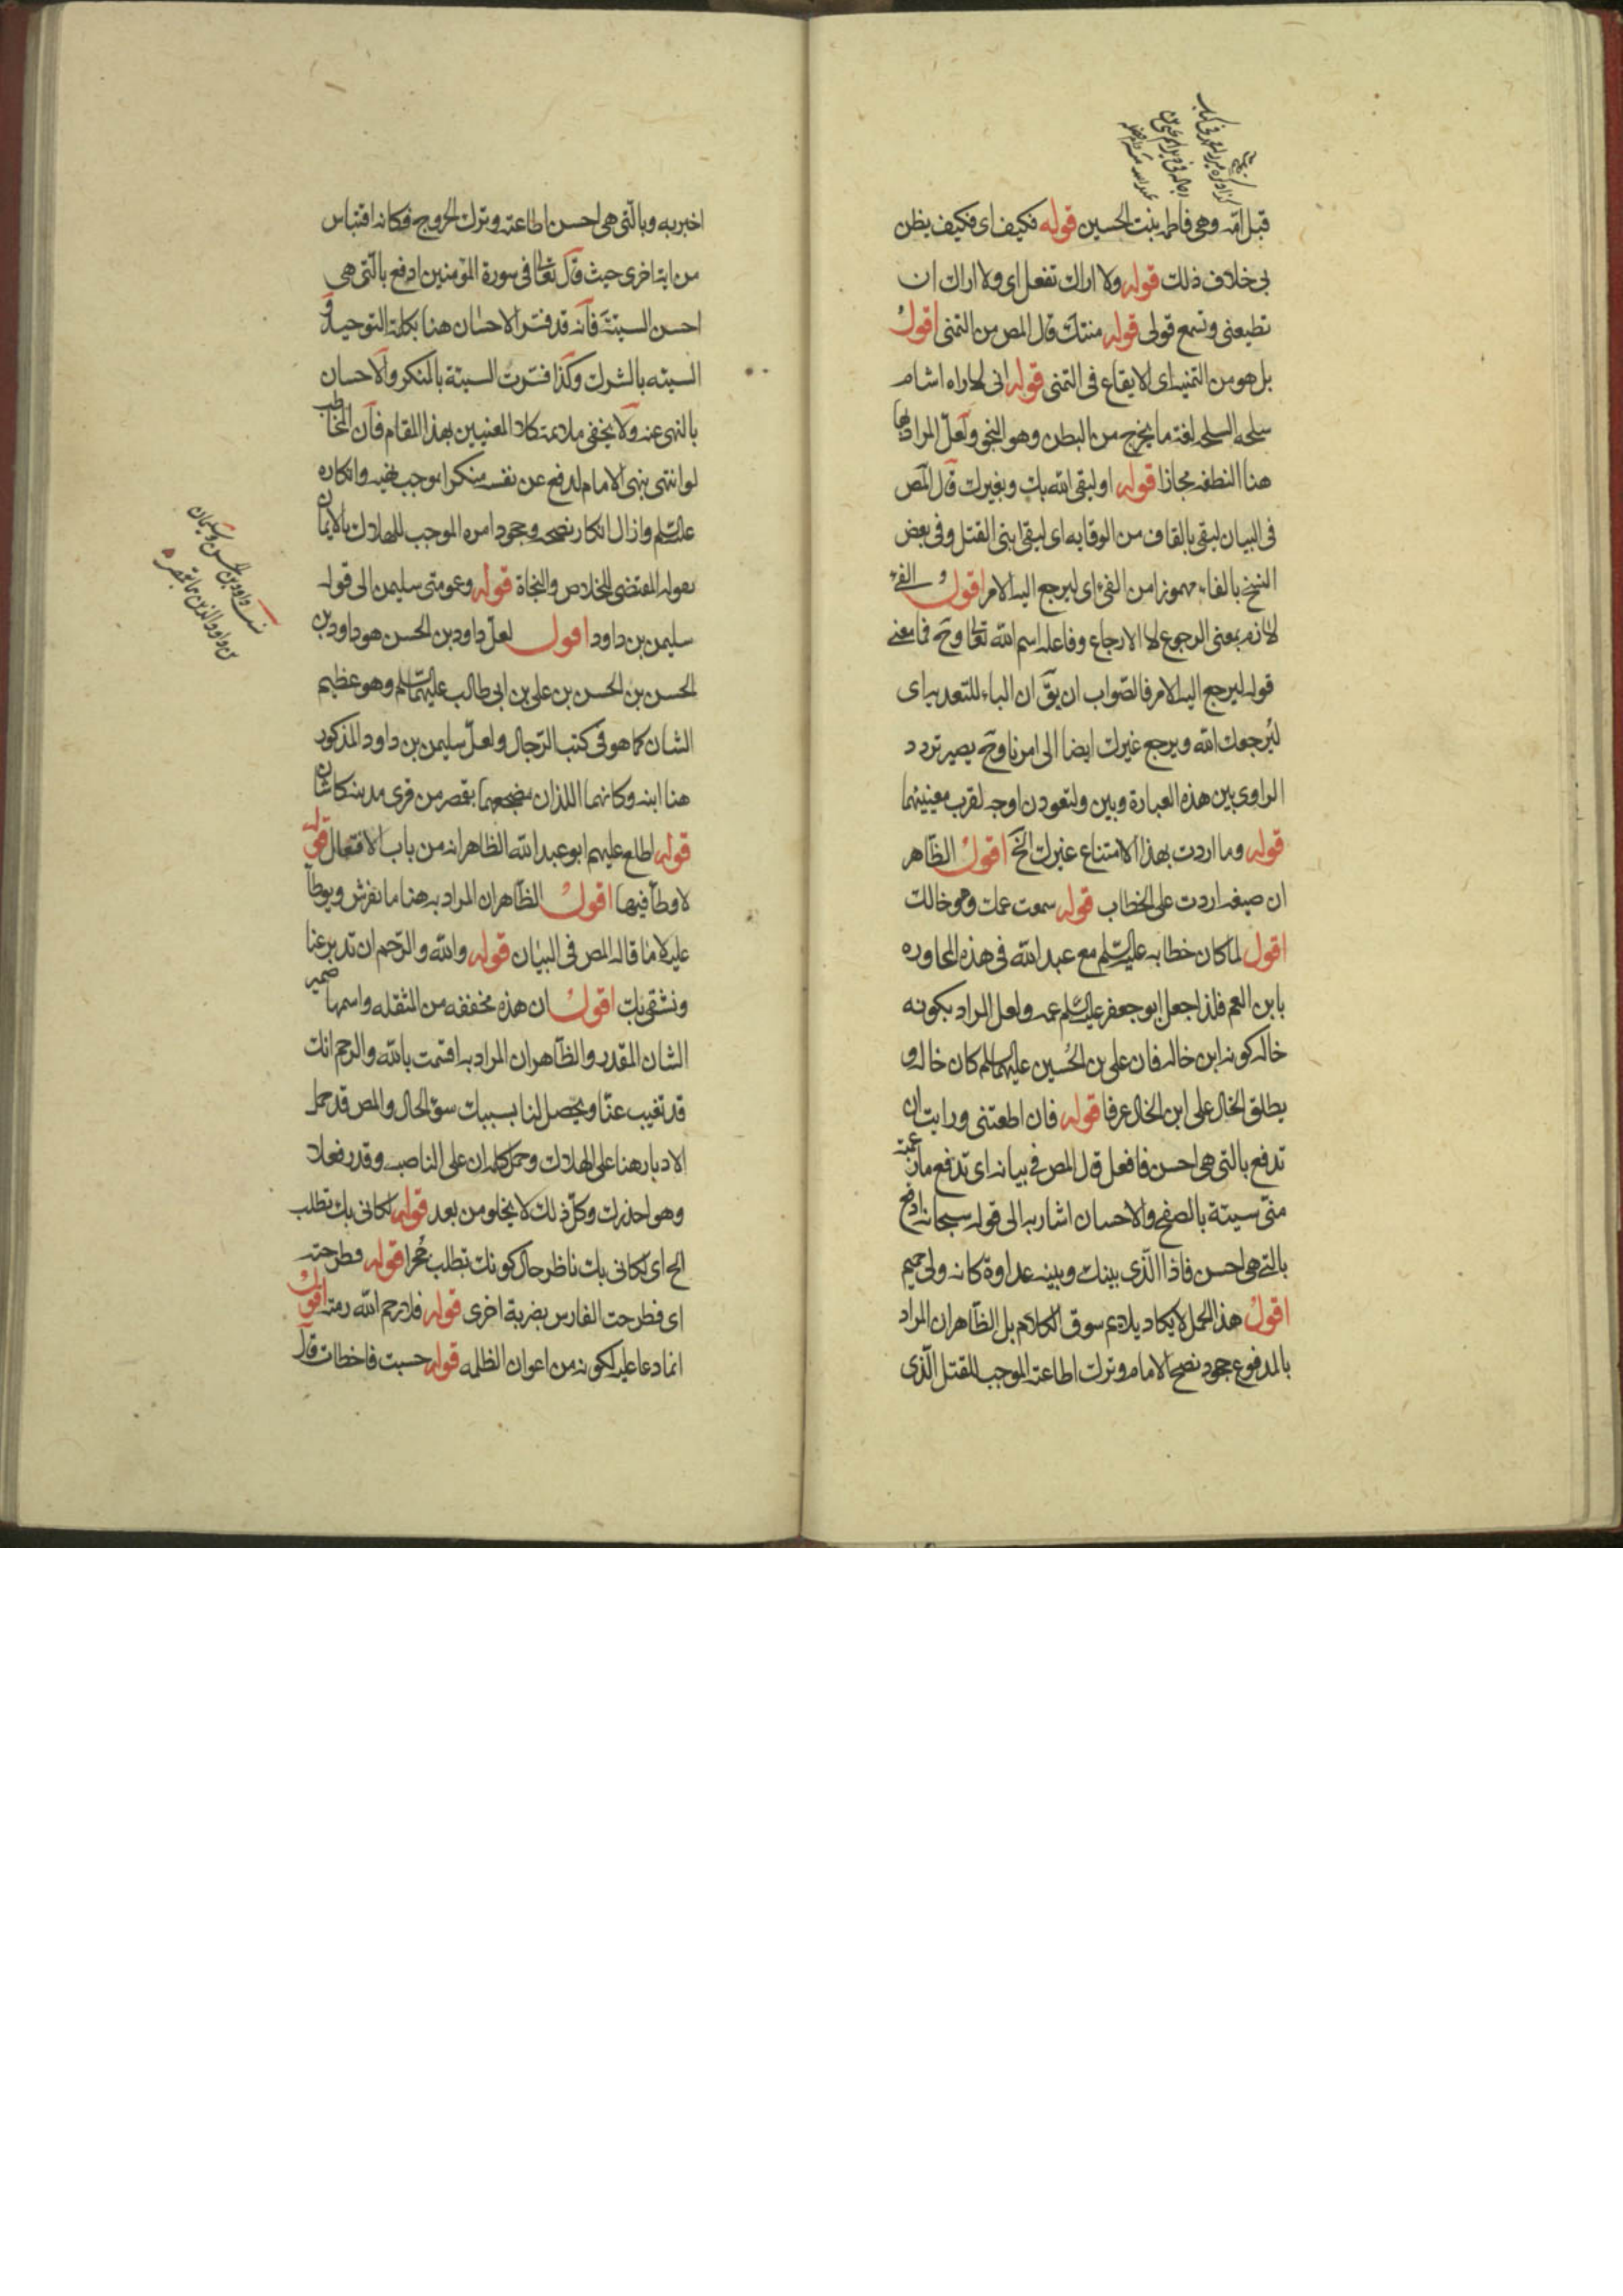 قبل امّه وهى فاطمه بنت الحسين قوله فكيف اى فكيف يظن
بى خلاف ذلك قوله ولا اراك تفعل اى ولا اراك ان
تطيعنى وتسمع قولى قوله منتك قال المص من التمنى اقول
بل هو من التمنيه اى الايقاع فى التمنى قوله انى لاراه اشام
سلحه السلحه لغة ما يخرج من البطن وهو النجو ولعلّ المراد بها
هنا النطفه مجازا قوله او ليقى الله بك وبغيرك قال المص
فى البيان ليقى بالقاف من الوقايه اى ليقى ابنى القتل وفى بعض
النسخ بالفاء مهموزا من الفىء اى ليرجع اليه الامر اقول والفىء
لازم بمعنى الرجوع لا الارجاع وفاعله اسم الله تعالى وح فما معنى
قوله ليرجع اليه الامر فالصّواب ان يقّ ان الباء للتعديه اى
ليُرجعك الله ويرجع غيرك ايضا الى امرنا وح يصير تردد
الراوى بين هذه العبارة وبين ولتعودن اوجه لقرب معنييهما
قوله وما اردت بهذا الامتناع غيرك الخ اقول الظّاهر
ان صيغه اردت على الخطاب قوله سمعت عمك وهو خالك
اقول لما كان خطابه عليه السّلم مع عبد الله فى هذه المحاوره
بابن العم فلذا جعل ابو جعفر عليه السّلم عمه ولعل المراد بكونه
خاله كونه ابن خاله فان على بن الحُسين عليهما السلم كان خاله و
يطلق الخال على ابن الخال عرفا قوله فان اطعتنى ورايت ان
تدفع بالتى هى احسن فافعل قال المص فى بيانه اى تدفع ما زعمته
منّى سيئة بالصفح والاحسان اشار به الى قوله سبحانه ادفع
بالتى هى احسن فاذا الّذى بينك وبينه عداوة كانه ولى حميم
اقول هذا الحمل لا يكاد يلايم سوق الكلام بل الظّاهر ان المراد
بالمدفوع جحود نصح الامام وترك اطاعته الموجب للقتل الّذى
اخبر به وبالّتى هى احسن اطاعته وترك الخروج فكانه اقتباس
من اية اخرى حيث قال تعالى فى سورة المؤمنين ادفع بالّتى هى
احسن السيئة فانه قد فسّر الاحسان هنا بكلمة التوحيد و
السيئه بالشرك وكذا فسّرت السيئة بالمنكر والاحسان
بالنهى عنه ولا يخفى ملايمته كلا المعنيين بهذا المقام فان المخاطب
لو انتهى بنهى الامام لدفع عن نفسه منكرا موجب غيه وانكاره
عليه السّلم وازال انكار نصحه وجحود امره الموجب للهلاك بالايمان
بقوله المقتضى للخلاص والنجاة قوله وعمومتى سليمن الى قوله
سليمن بن داود اقول لعلّ داود بن الحسن هو داود بن
الحسن بن الحسن بن على بن ابى طالب عليهما السّلم وهو عظيم
الشان كما هو فى كتب الرّجال ولعلّ سليمن بن داود المذكور
هنا ابنه وكانهما اللذان مضجعهما بقمصر من قرى مدينه كاشان
قوله اطلع عليهم ابو عبد الله الظاهر انه من باب الافتعال قوله
لا وطآ فيها اقول الظّاهر ان المراد به هنا ما يفرش ويوطا
عليه لا ما قاله المص فى البيان قوله والله والرّحم ان تدبر عنا
ونشقى بك اقول ان هذه مخففه من المثقله واسمها ضمير
الشان المقدر والظّاهر ان المراد به اقسمت بالله والرحم انك
قد تغيب عنّا ويحصل لنا بسببك سوء الحال والمص قد حمل
الادبار هنا على الهلاك وحمل كلمه ان على الناصبه وقدر فعلا
وهو احذرك وكلّ ذلك لا يخلو من بعد قوله لكانى بك تطلب
الخ اى لكانى بك ناظر حال كونك تطلب جُحرا قوله فطرحته
اى فطرحت الفارس بضربة اخرى قوله فلا رحم الله رمته اقول
انما دعا عليه لكونه من اعوان الظلمه قوله حسبت فاخطات قال